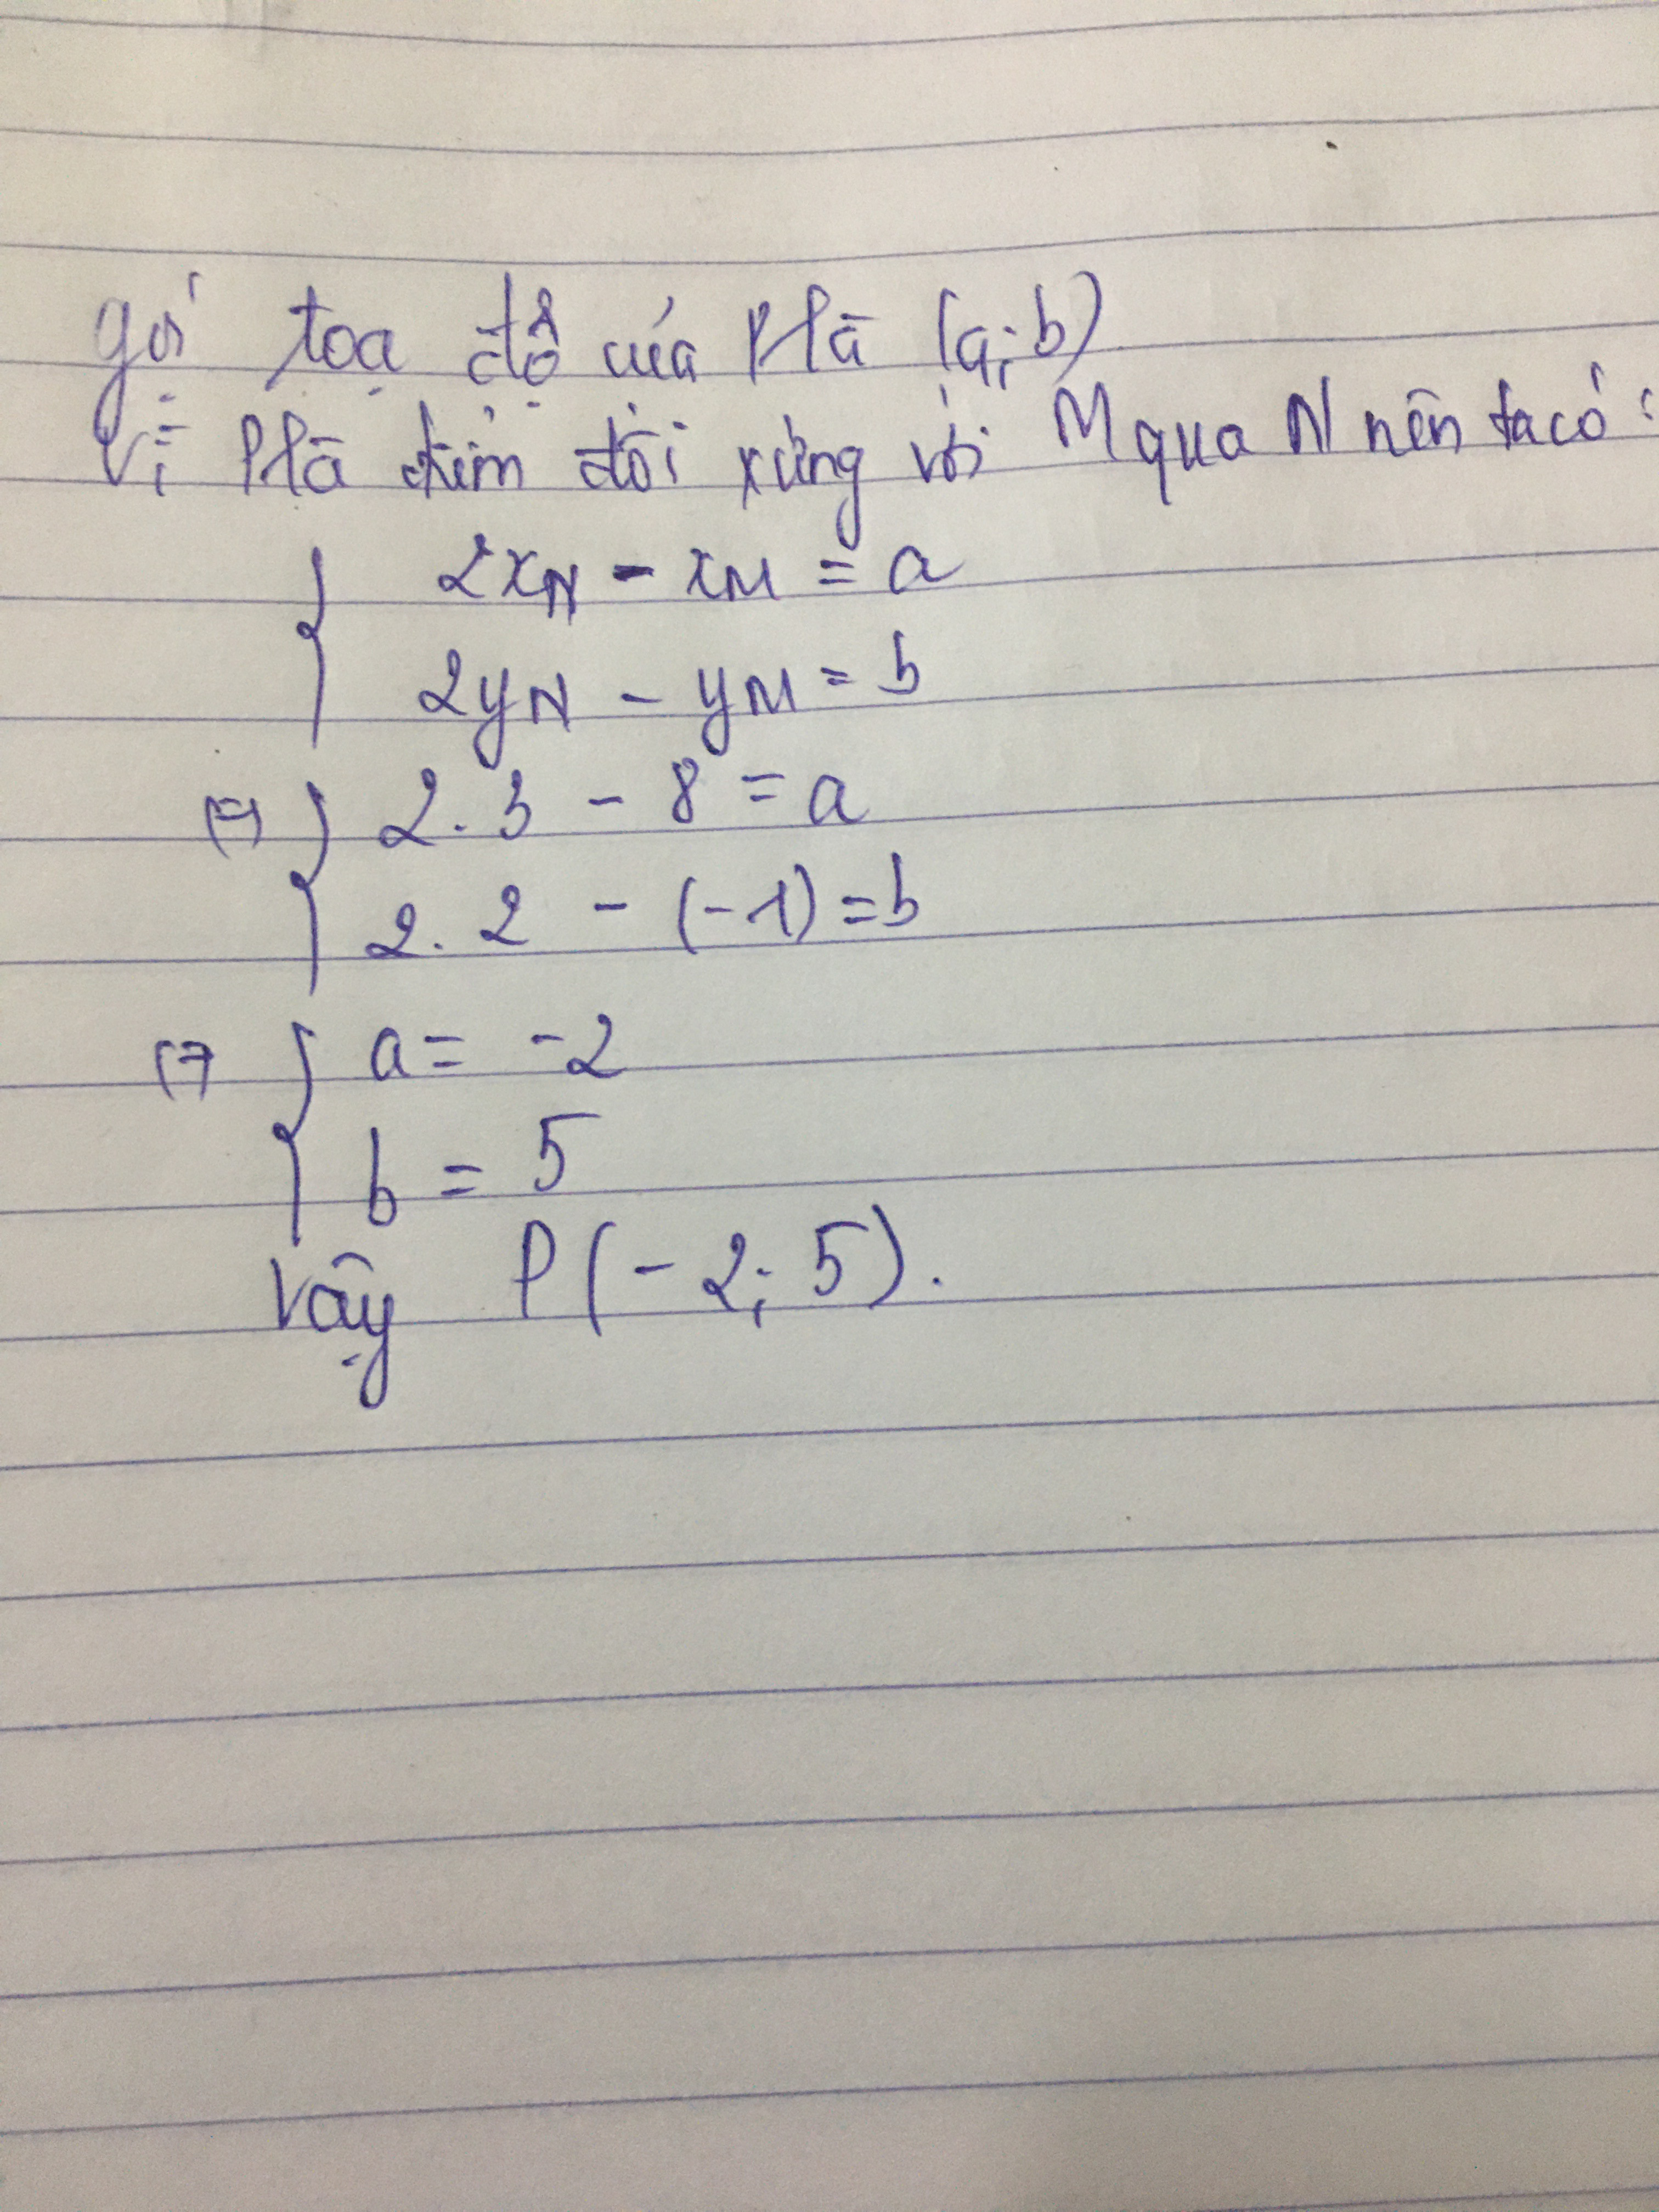 gọi toạ độ của P là (a; b)
Vì P là điểm đối xứng với M qua N nên ta có :
{ 2xN - xM = a
2yN - yM = b
⇔ { 2. 3 - 8 = a
2. 2 - (-1) = b
⇔ { a = -2
b = 5
Vậy P(-2; 5).